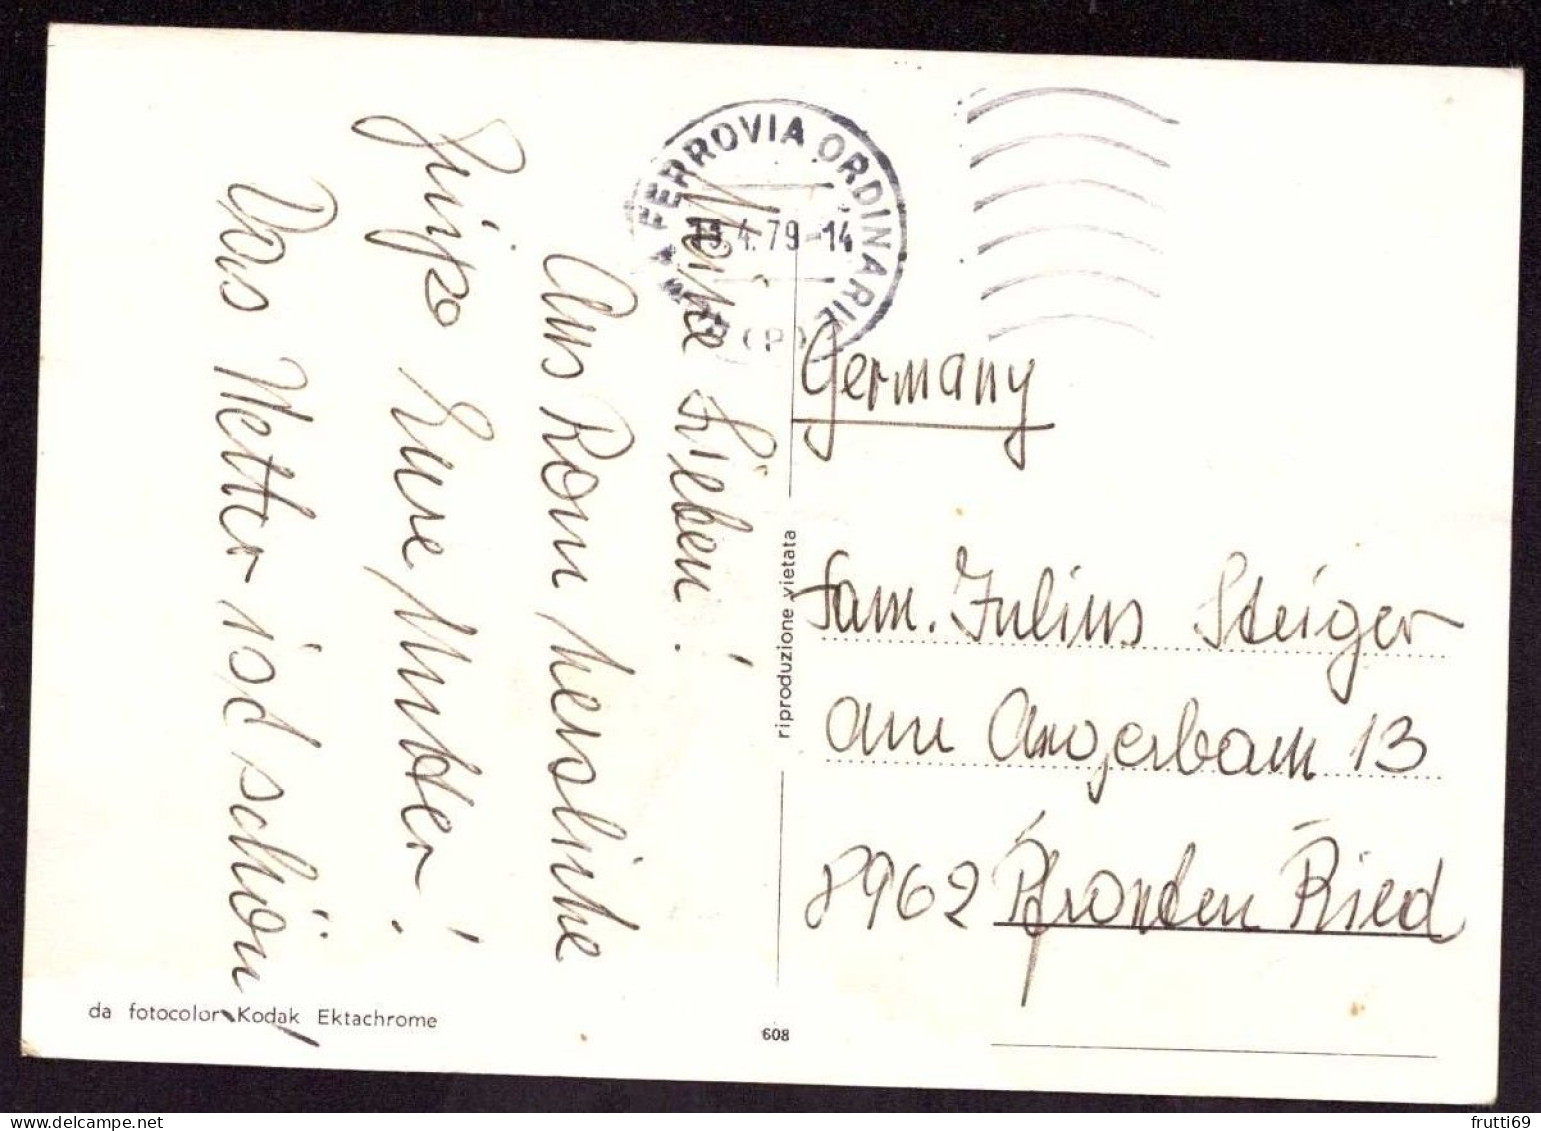 Meine Lieben!
Aus Rom herzliche
Grüße Eure Mutter!
Das Wetter ist schön!
FERROVIA ORDINARIE
13.4.79-14
(P)
Germany
riproduzione vietata
Fam. Julius Steiger
am Angerbam 13
8962 Pfronten Ried
da fotocolor Kodak Ektachrome
608
frutti69